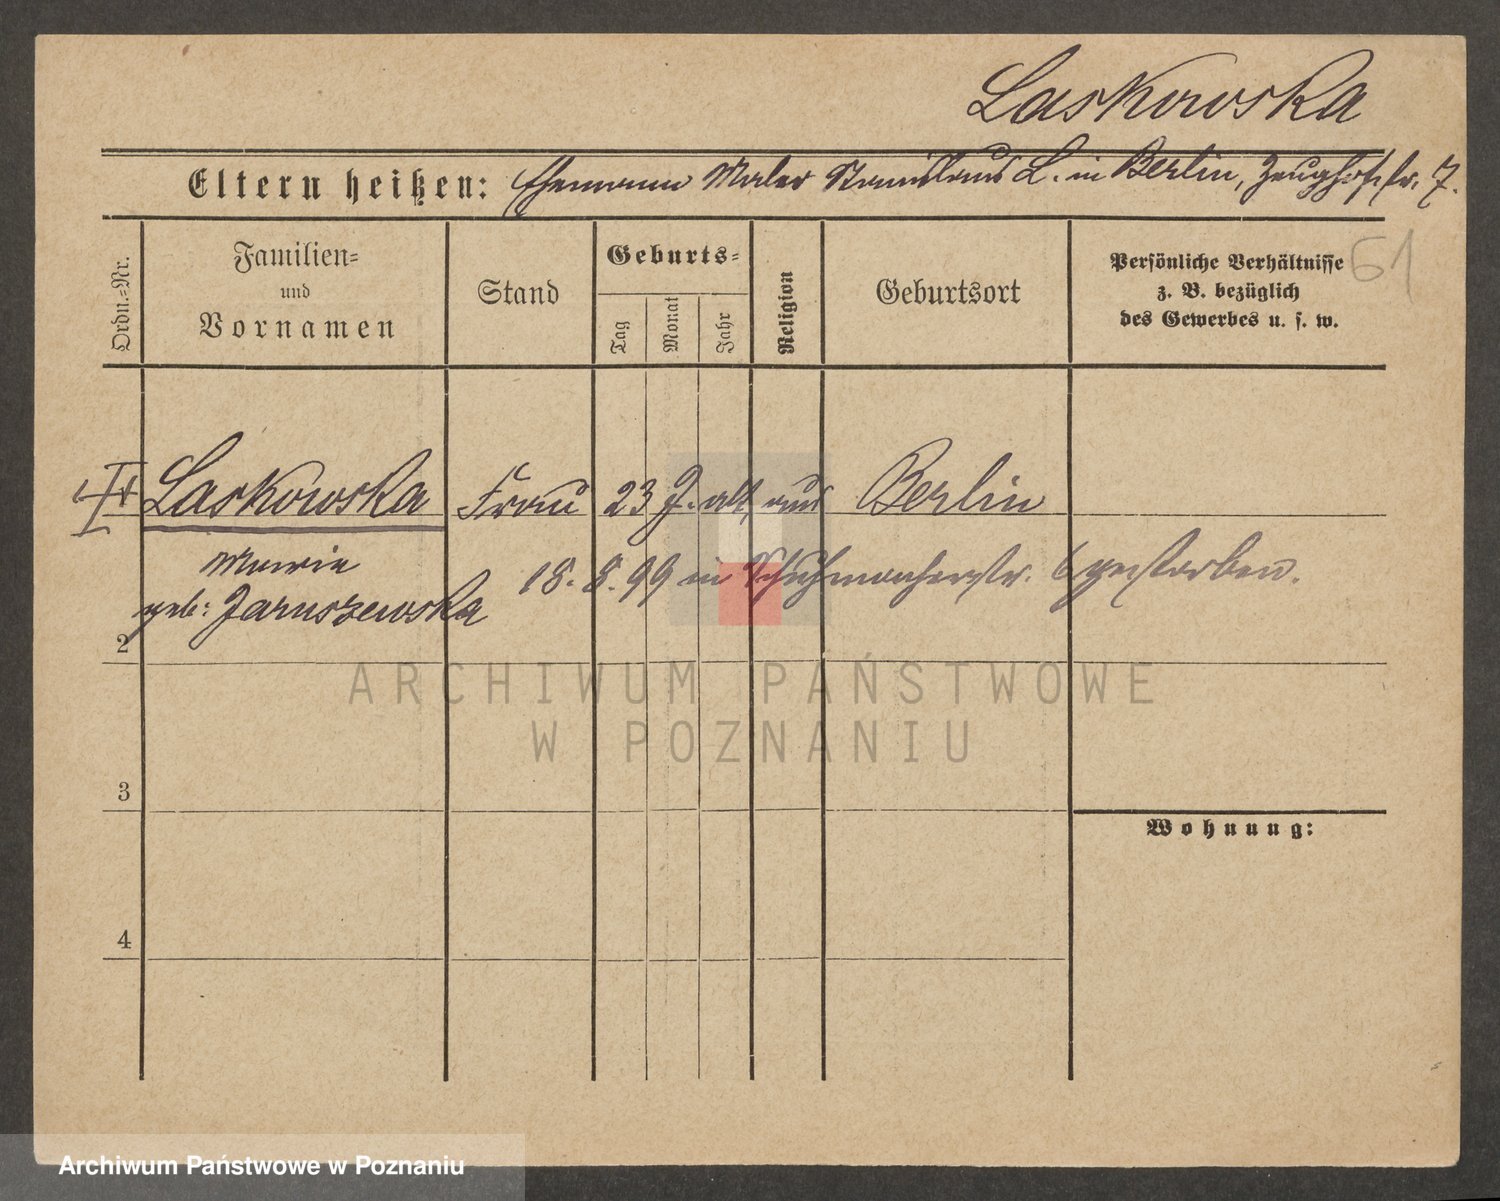 Laskowska
Eltern heißen: Ehemann Maler Stanislaus L. in Berlin, Zeughofstr. 7.
Ordn.-Nr.
Familien-
und
Vornamen
Stand
Geburts-
Tag
Monat
Jahr
Religion
Geburtsort
Persönliche Verhältnisse
z. B. bezüglich
des Gewerbes u. s. w.
61
Laskowska Frau 23 J. alt, aus Berlin
Marie
18. 8. 99 in Schuhmacherstr. 6 gestorben.
geb: Jaruszewska
2
3
Wohnung:
4
ARCHIWUM PAŃSTWOWE
W POZNANIU
Archiwum Państwowe w Poznaniu